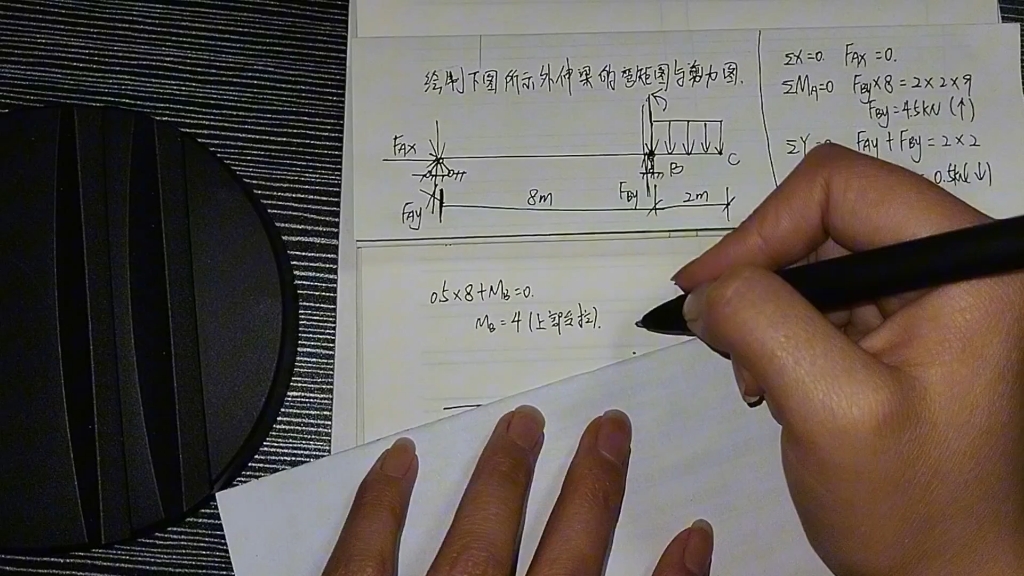 绘制下图所示外伸梁的弯矩图与剪力图.
FAX
FAy
8m
FBy
B
2m
C
ΣX=0. FAX=0.
ΣMA=0 FBy×8=2×2×9
FBy=4.5kN(↑)
ΣY=0 FAy+FBy=2×2
=0.5kN(↓)
0.5×8+MB=0.
MB=4(上部受拉).